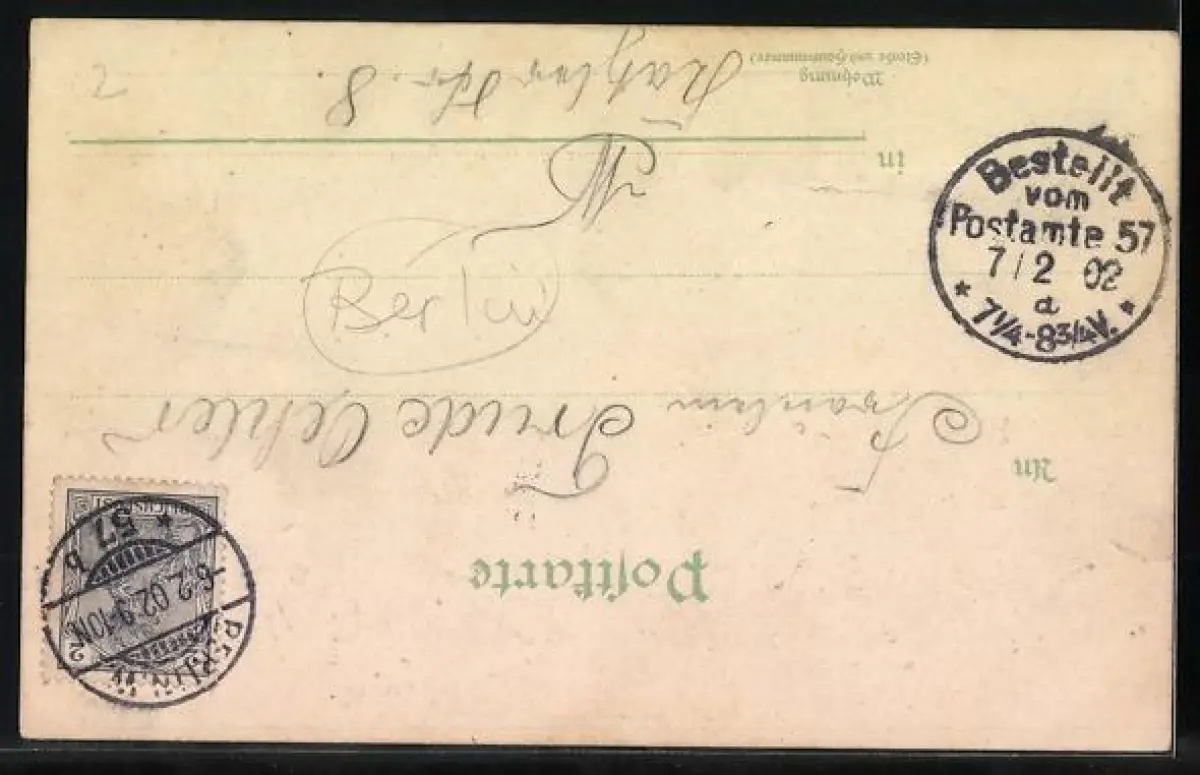 Postkarte
An
Fräulein
Trude Oehler
Berlin
in
W
Wohnung
(Straße und Hausnummer)
Str. 8.
2
Bestellt
vom
Postamte 57
7/2 02
d
* 7¼-8¾V. *
REICHSPOST
2
BERLIN W.
6.2.02.9-10N.
* 57 b